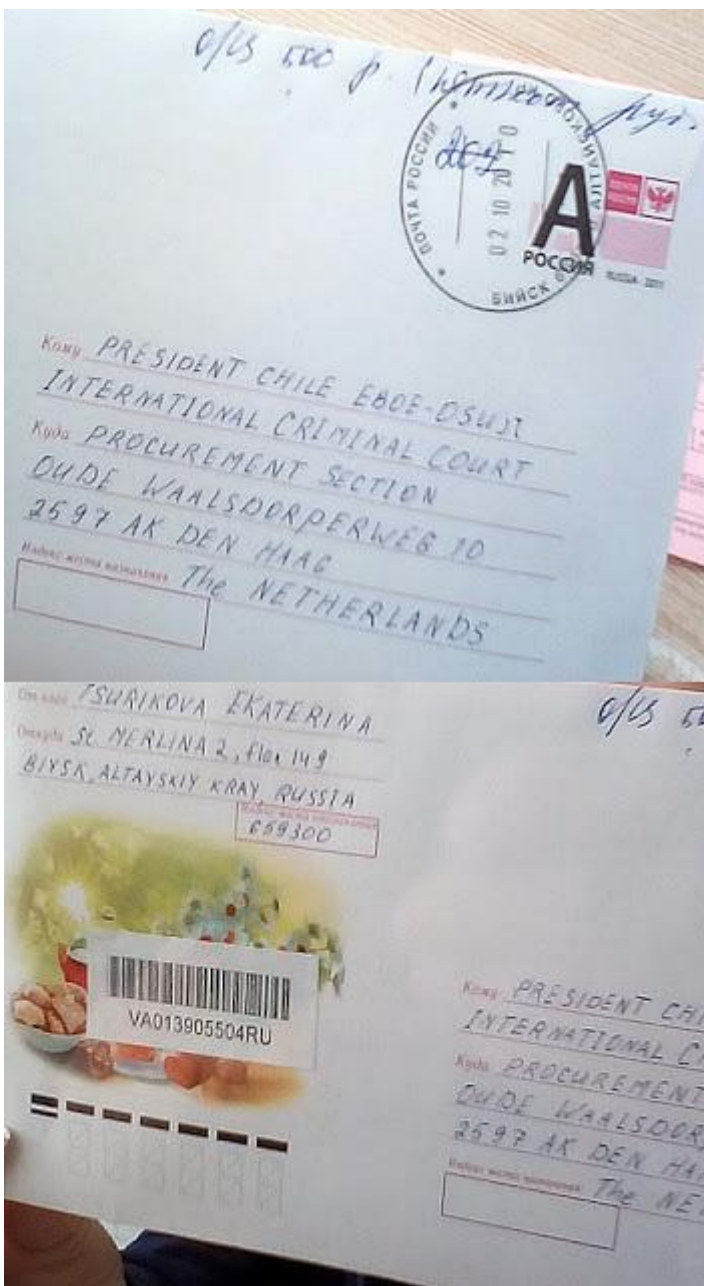 о/ц 500 р.
ПОЧТА РОССИИ
БИЙСК
02 10 20
А
РОССИЯ
RUSSIA · 2011
Кому PRESIDENT CHILE EBOE-OSUJI
INTERNATIONAL CRIMINAL COURT
Куда PROCUREMENT SECTION
OUDE WAALSDORPERWEG 10
2597 AK DEN HAAG
Индекс места назначения The NETHERLANDS
От кого TSURIKOVA EKATERINA
Откуда St. MERLINA 2, flar 149
BIYSK, ALTAYSKIY KRAY, RUSSIA
659300
о/ц
VA013905504RU
Кому PRESIDENT CHI
INTERNATIONAL C
Куда PROCUREMENT
OUDE WAALSDOR
2597 AK DEN HA
Индекс места назначения The NE